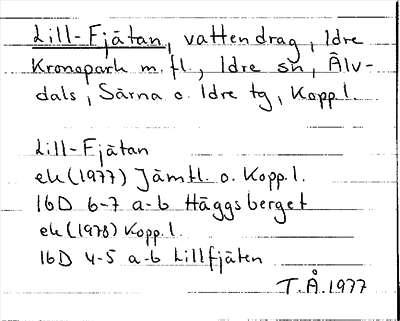 Lill-Fjätan, vattendrag, Idre
Kronopark m. fl., Idre sn, Älv-
dals, Särna o. Idre tg, Kopp. l.
Lill-Fjätan
ek (1977) Jämtl. o. Kopp. l.
16D 6-7 a-b Häggsberget
ek (1978) Kopp. l.
16D 4-5 a-b Lillfjäten
T.Å. 1977